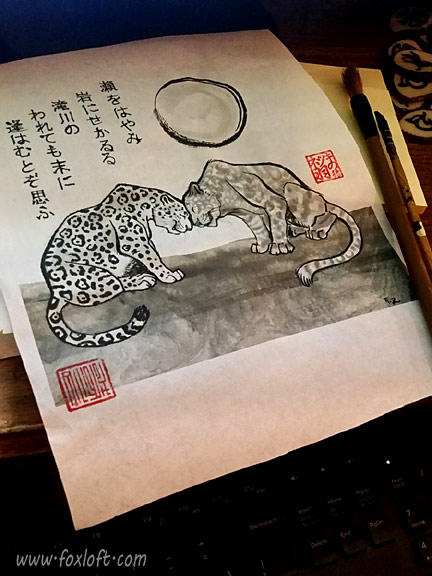 瀬をはやみ
岩にせかるる
滝川の
われても末に
逢はむとぞ思ふ
www.foxloft.com